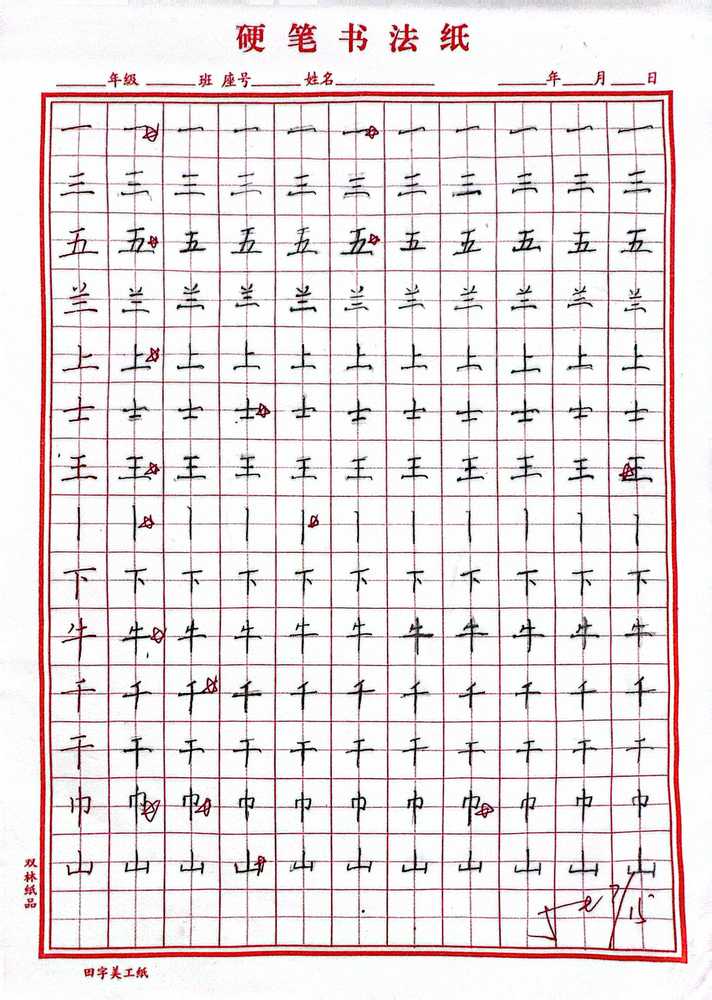 硬笔书法纸
年级 班 座号 姓名 年 月 日
一 一 一 一 一 一 一 一 一 一 一
三 三 三 三 三 三 三 三 三 三 三
五 五 五 五 五 五 五 五 五 五 五
兰 兰 兰 兰 兰 兰 兰 兰 兰 兰 兰
上 上 上 上 上 上 上 上 上 上 上
士 士 士 士 士 士 士 士 士 士 士
王 王 王 王 王 王 王 王 王 王 王
丨 丨 丨 丨 丨 丨 丨 丨 丨 丨 丨
下 下 下 下 下 下 下 下 下 下 下
牛 牛 牛 牛 牛 牛 牛 牛 牛 牛 牛
千 千 千 千 千 千 千 千 千 千 千
干 干 干 干 干 干 干 干 干 干 干
巾 巾 巾 巾 巾 巾 巾 巾 巾 巾 巾
山 山 山 山 山 山 山 山 山 山 山
双林纸品
田字美工纸